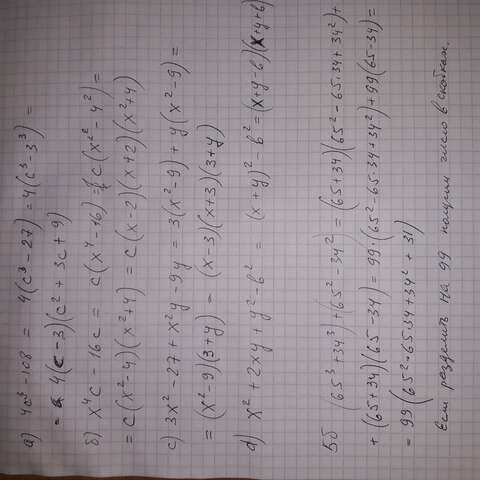 a) 4c³ - 108 = 4(c³ - 27) = 4(c³ - 3³) =
= 4(c - 3)(c² + 3c + 9)
б) x⁴c - 16c = c(x⁴ - 16) = c(x²² - 4²) =
= c(x² - 4)(x² + 4) = c(x - 2)(x + 2)(x² + 4)
c) 3x² - 27 + x²y - 9y = 3(x² - 9) + y(x² - 9) =
= (x² - 9)(3 + y) = (x - 3)(x + 3)(3 + y)
d) x² + 2xy + y² - b² = (x + y)² - b² = (x + y - b)(x + y + b)
5б (65³ + 34³) + (65² - 34²) = (65 + 34)(65² - 65·34 + 34²) +
+ (65 + 34)(65 - 34) = 99·(65² - 65·34 + 34²) + 99(65 - 34) =
= 99(65² - 65·34 + 34² + 31)
Если разделить на 99 получим число в скобках.